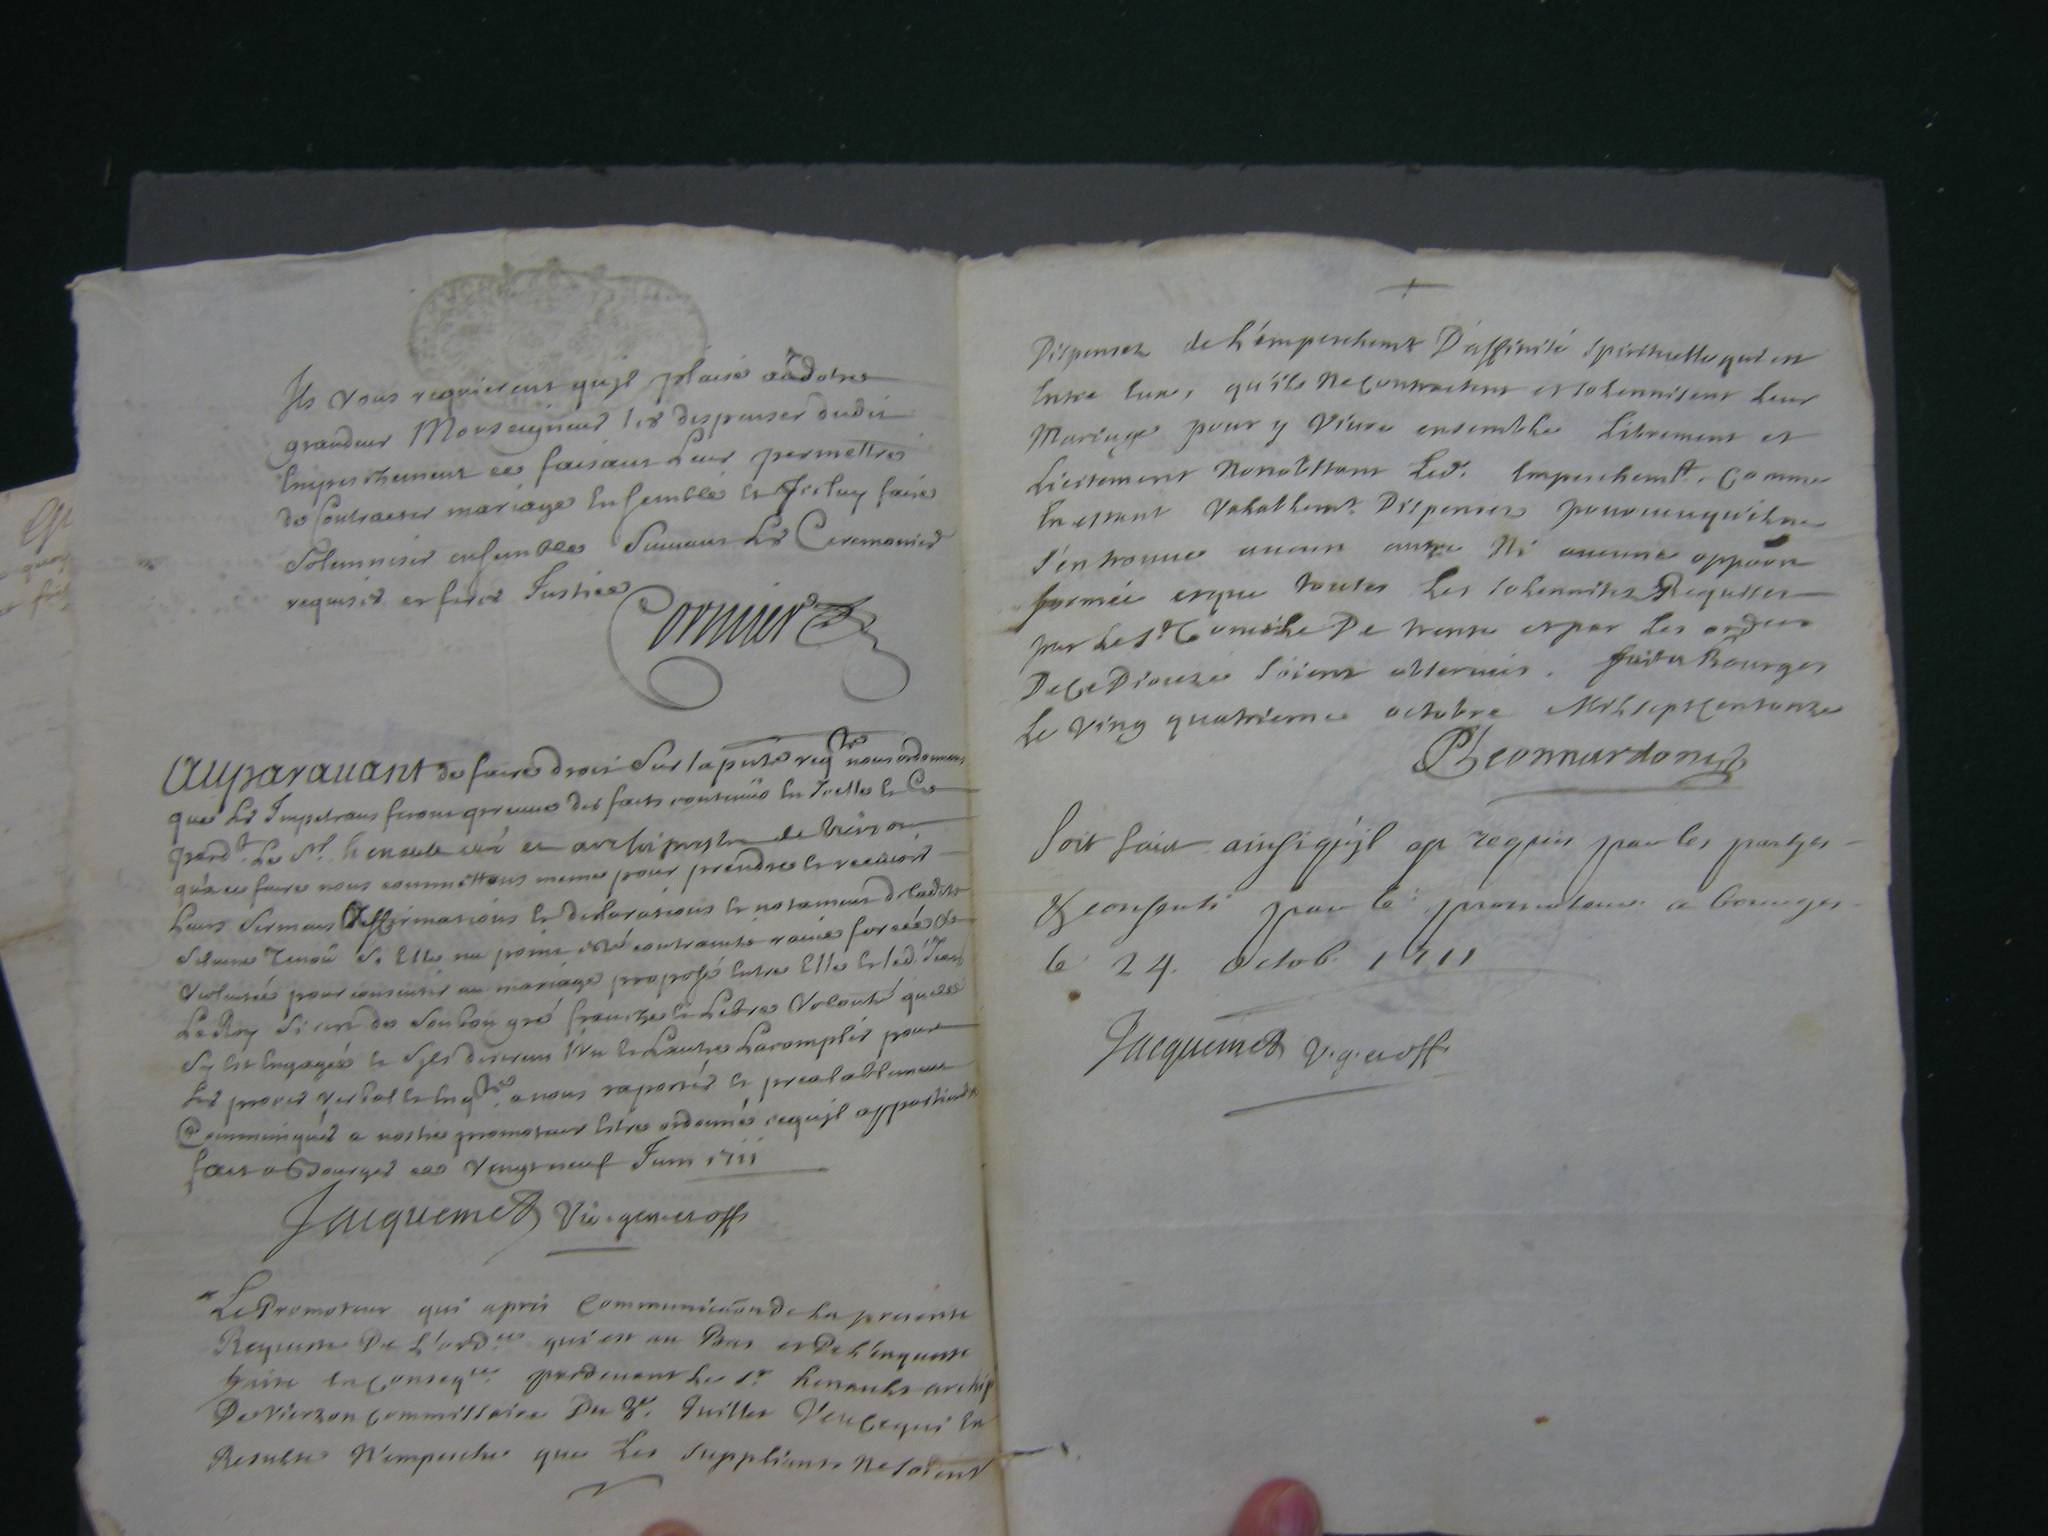 Ils vous requierent qujl plaise a Votre
grandeur Monseigneur les dispenser dudit
Empeschement ce faisant Leur permettre
de Contracter mariage Ensemble et Jceluy faire
Solemniser ensemble Suiuant Les Ceremonies
requises et ferez Justice
Cormier
Auparauant de faire droit Sur la pnte reqte nous ordonnons
que Les Impetrans feront preuue des faits contenüs En Jcelle
pard.t Le Sr. henault curé et archiprestre de Vierzon
qua ce faire nous commettons mesme pour prendre et receuoir
Leurs Sermens affirmations et declarations et notament de ladite
Solanne Si Elle na point esté contrainte rauie forcée et
Violentée pour consentir au mariage proposé Entre Elle et led. Jean
Le Roy Si cest de Son bon gré franche et Libre Volonté quelle
Sy est Engagée et Sjls desirent L'un et L'autre Lacomplir pour
Les proces verbal et Enqte a nous raportés et prealablement
Communiqués a nostre promoteur Estre ordonné ce qujl appartiendra
fait a Bourges ce Vingt neuf Juin 1711
Jacquemet Vic. gen. et off.
Le Promoteur qui apris Communicaon de La presente
Requeste De L'ord.ce qui est au Bas et De L'enqueste
faite En Conseq.ce pardeuant Le Sr. henault archip.
De Vierzon Commissaire Du Juillet Veu Ce qui En
Resulte N'empesche que Les Suppliants Ne Soient
Dispensez de L'empeschemt D'affinité Spirituelle qui est
Entre Eux, qu'ils Ne Contractent et Solennisent Leur
Mariage pour y Viure ensemble Librement et
Licitement Nonobstant Led. Empeschemt. Comme
En estant Valablemt. Dispensez pourueu qu'il ne
S'en trouue aucun autre Ni aucune opposon
formée et que toutes Les Solennitez Requises
par Le St. Concile De trente et par Les ordces
De Ce Dioceze Soient obseruées. fait a Bourges
Le Ving quatrieme octobre Mil Sept Cent onze
Leonnardon
Soit fait ainsi qujl est requis par les parties
& consenti par le promoteur a bourges
le 24. octob. 1711
Jacquemet V. g. et off.